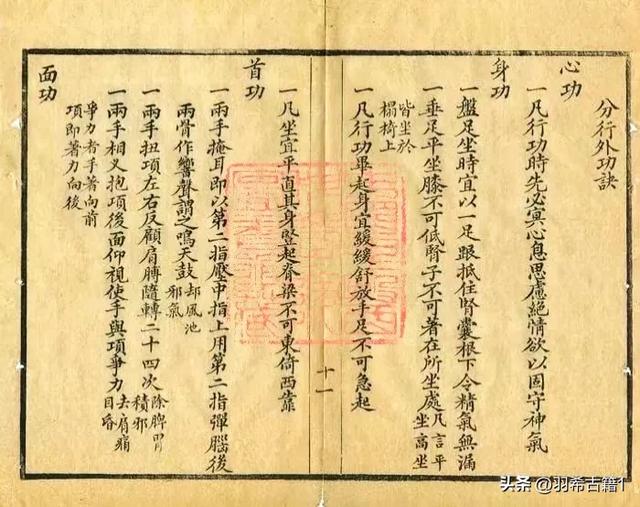 分行外功訣
心功
一凡行功時先必冥心息思慮絕情欲以固守神氣
身功
一盤足坐時宜以一足跟抵住腎囊根下令精氣無漏
一垂足平坐膝不可低腎子不可著在所坐處凡言平坐高坐
皆坐於榻椅上
一凡行功畢起身宜緩緩舒放手足不可急起
十一
一凡坐宜平直其身豎起脊梁不可東倚西靠
首功
一兩手掩耳即以第二指壓中指上用第二指彈腦後
兩骨作響聲謂之鳴天鼓却風池邪氣
一兩手扭項左右反顧肩膊隨轉二十四次除脾胃積邪
一兩手相叉抱項後面仰視使手與項爭力去肩痛目昏
爭力者手著向前項即著力向後
面功
头条 @羽希古籍1